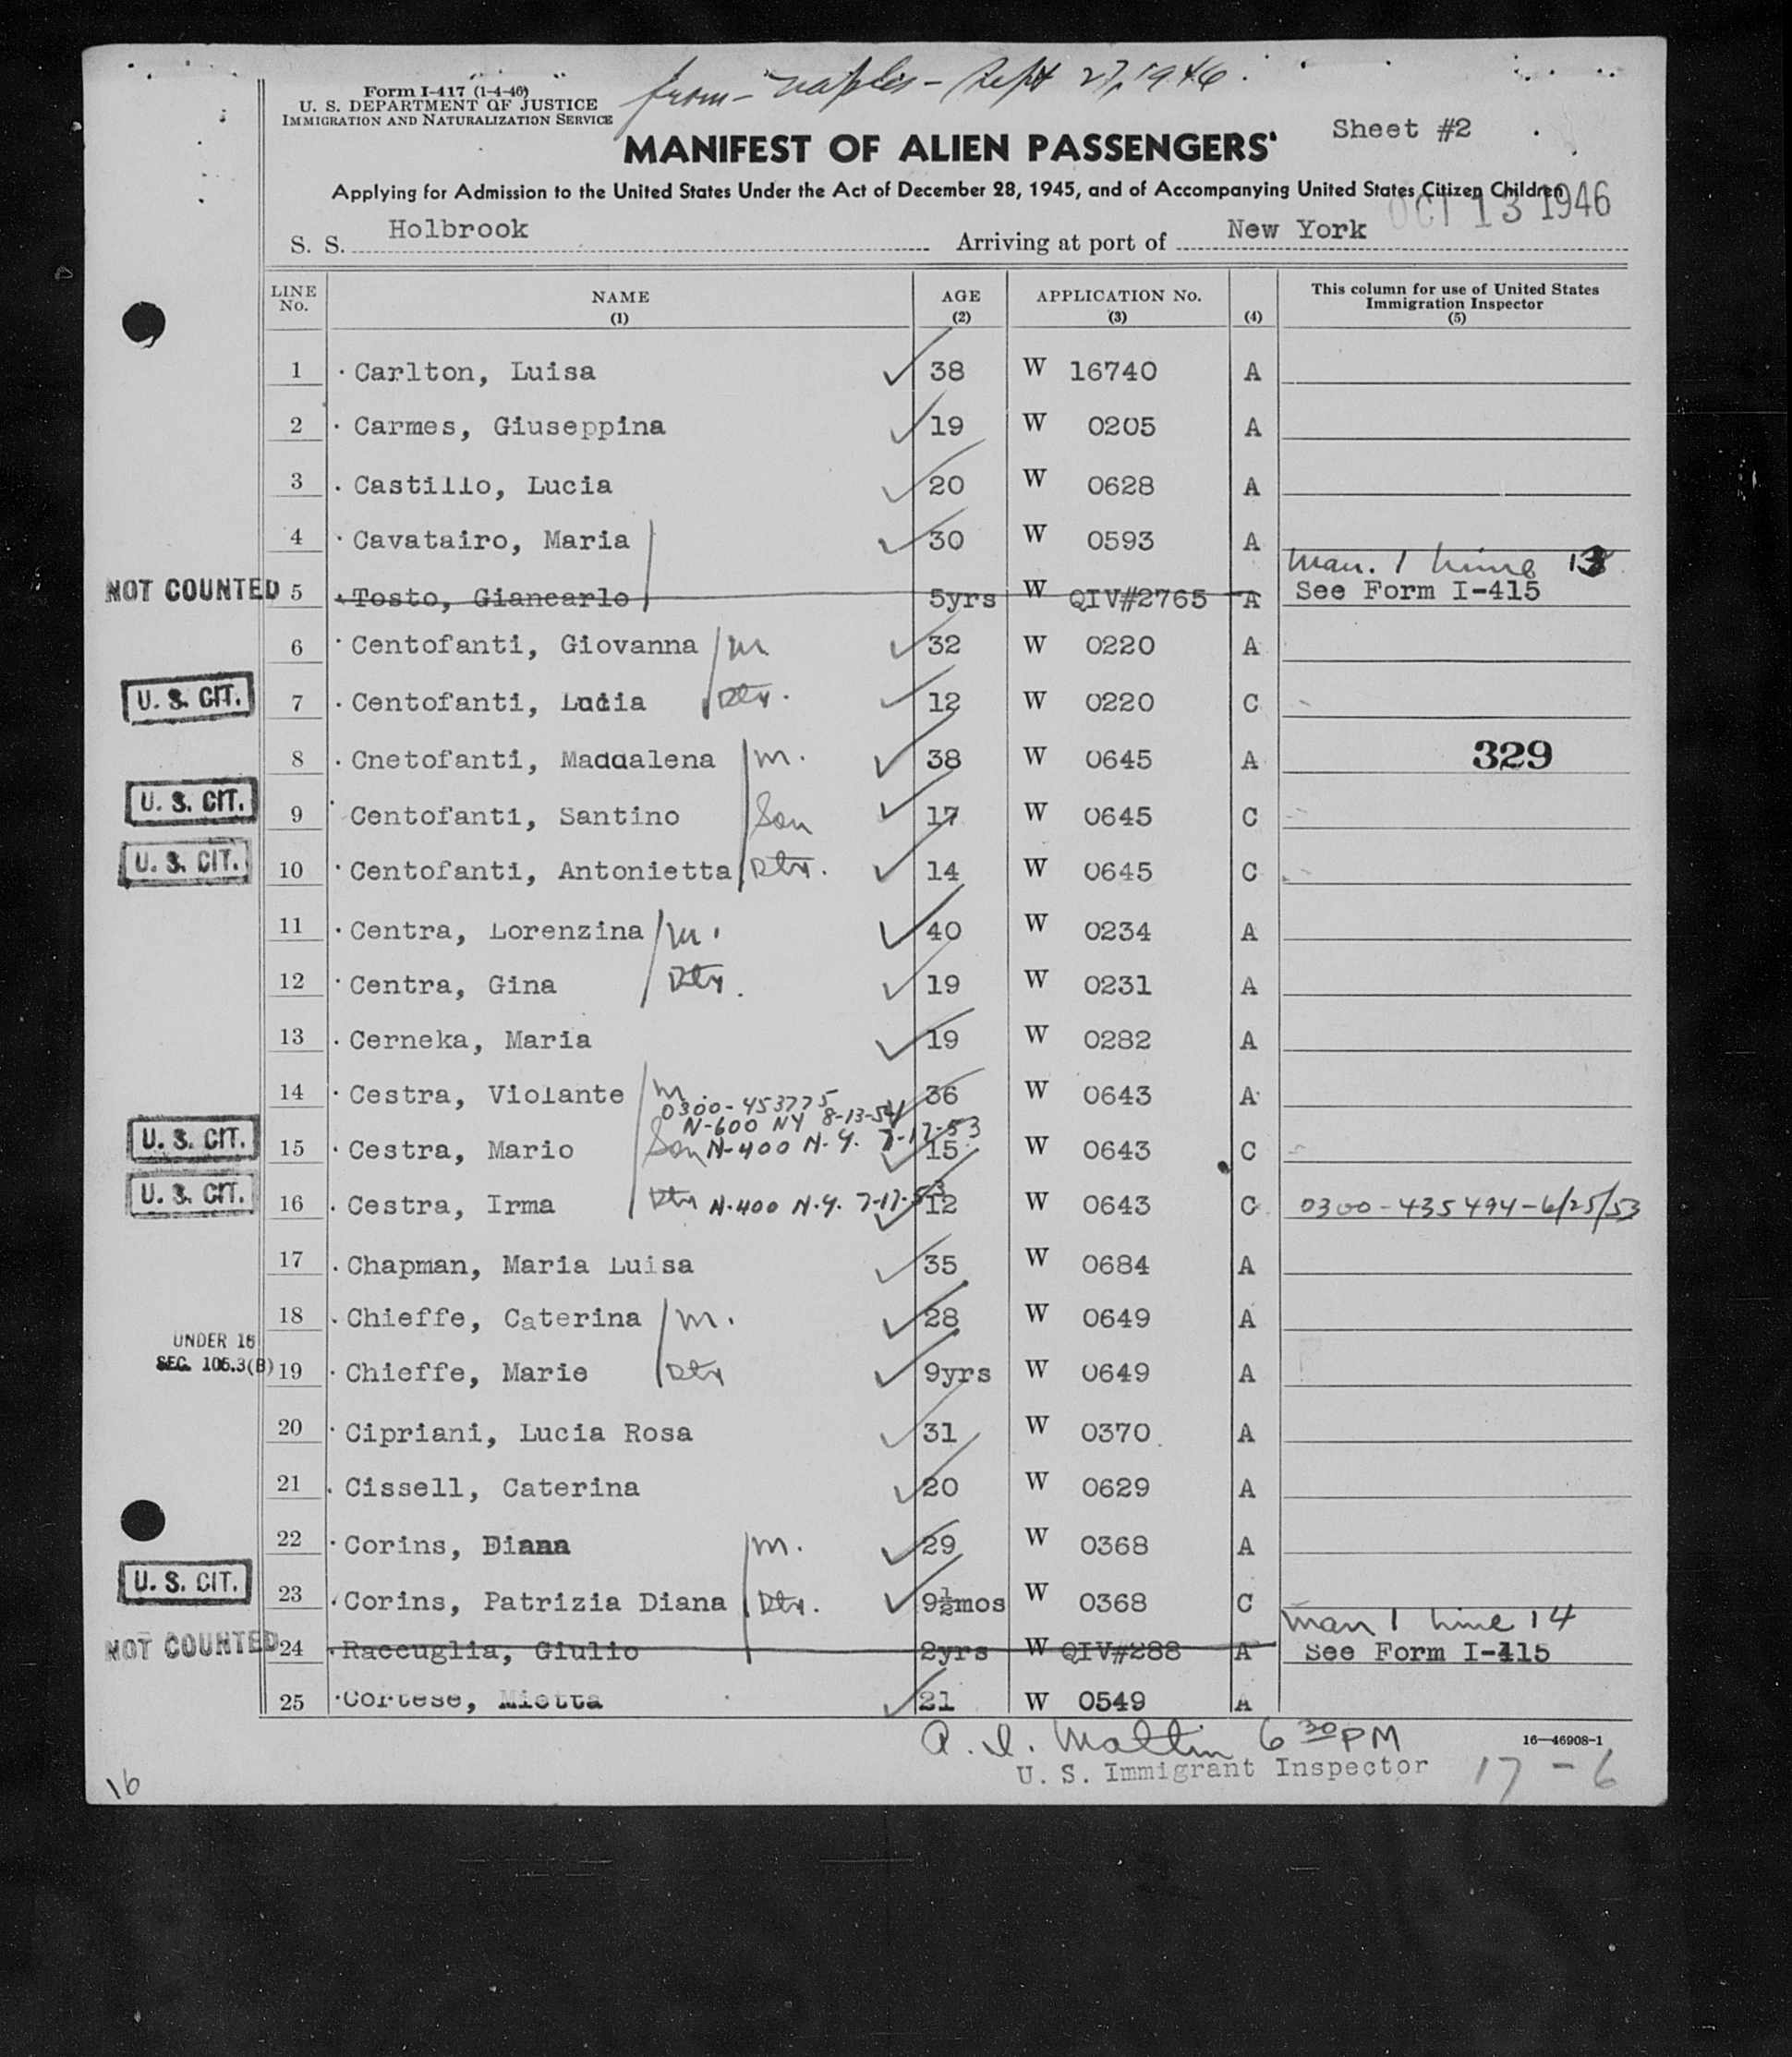 from - Naples - Sept 27, 1946.
Form I-417 (1-4-46)
U. S. DEPARTMENT OF JUSTICE
IMMIGRATION AND NATURALIZATION SERVICE
Sheet #2
MANIFEST OF ALIEN PASSENGERS
Applying for Admission to the United States Under the Act of December 28, 1945, and of Accompanying United States Citizen Children
OCT 13 1946
S. S. Holbrook Arriving at port of New York
LINE No. NAME (1) AGE (2) APPLICATION No. (3) (4) This column for use of United States Immigration Inspector (5)
1 Carlton, Luisa 38 W 16740 A
2 Carmes, Giuseppina 19 W 0205 A
3 Castillo, Lucia 20 W 0628 A
4 Cavatairo, Maria 30 W 0593 A
Man. 1 Line 13
NOT COUNTED 5 Tosto, Giancarlo 5yrs W QIV#2765 A See Form I-415
6 Centofanti, Giovanna m 32 W 0220 A
U. S. CIT. 7 Centofanti, Lucia Dtr. 12 W 0220 C
8 Cnetofanti, Maddalena m. 38 W 0645 A 329
U. S. CIT. 9 Centofanti, Santino Son 17 W 0645 C
U. S. CIT. 10 Centofanti, Antonietta Dtr. 14 W 0645 C
11 Centra, Lorenzina m. 40 W 0234 A
12 Centra, Gina Dtr. 19 W 0231 A
13 Cerneka, Maria 19 W 0282 A
14 Cestra, Violante m 36 W 0643 A
0300-453775
N-600 NY 8-13-54
U. S. CIT. 15 Cestra, Mario Son N-400 N.Y. 7-17-53 15 W 0643 C
U. S. CIT. 16 Cestra, Irma Dtr N-400 N.Y. 7-17-53 12 W 0643 C 0300-435494-6/25/53
17 Chapman, Maria Luisa 35 W 0684 A
18 Chieffe, Caterina m. 28 W 0649 A
UNDER 16
SEC. 105.3(B) 19 Chieffe, Marie Dtr 9yrs W 0649 A
20 Cipriani, Lucia Rosa 31 W 0370 A
21 Cissell, Caterina 20 W 0629 A
22 Corins, Diana m. 29 W 0368 A
U. S. CIT. 23 Corins, Patrizia Diana Dtr. 9½mos W 0368 C
Man 1 Line 14
NOT COUNTED 24 Raccuglia, Giulio 2yrs W QIV#288 A See Form I-415
25 Cortese, Mietta 21 W 0549 A
A. I. Maltin 6 30 PM
16—46908-1
U. S. Immigrant Inspector
17 - 6
16